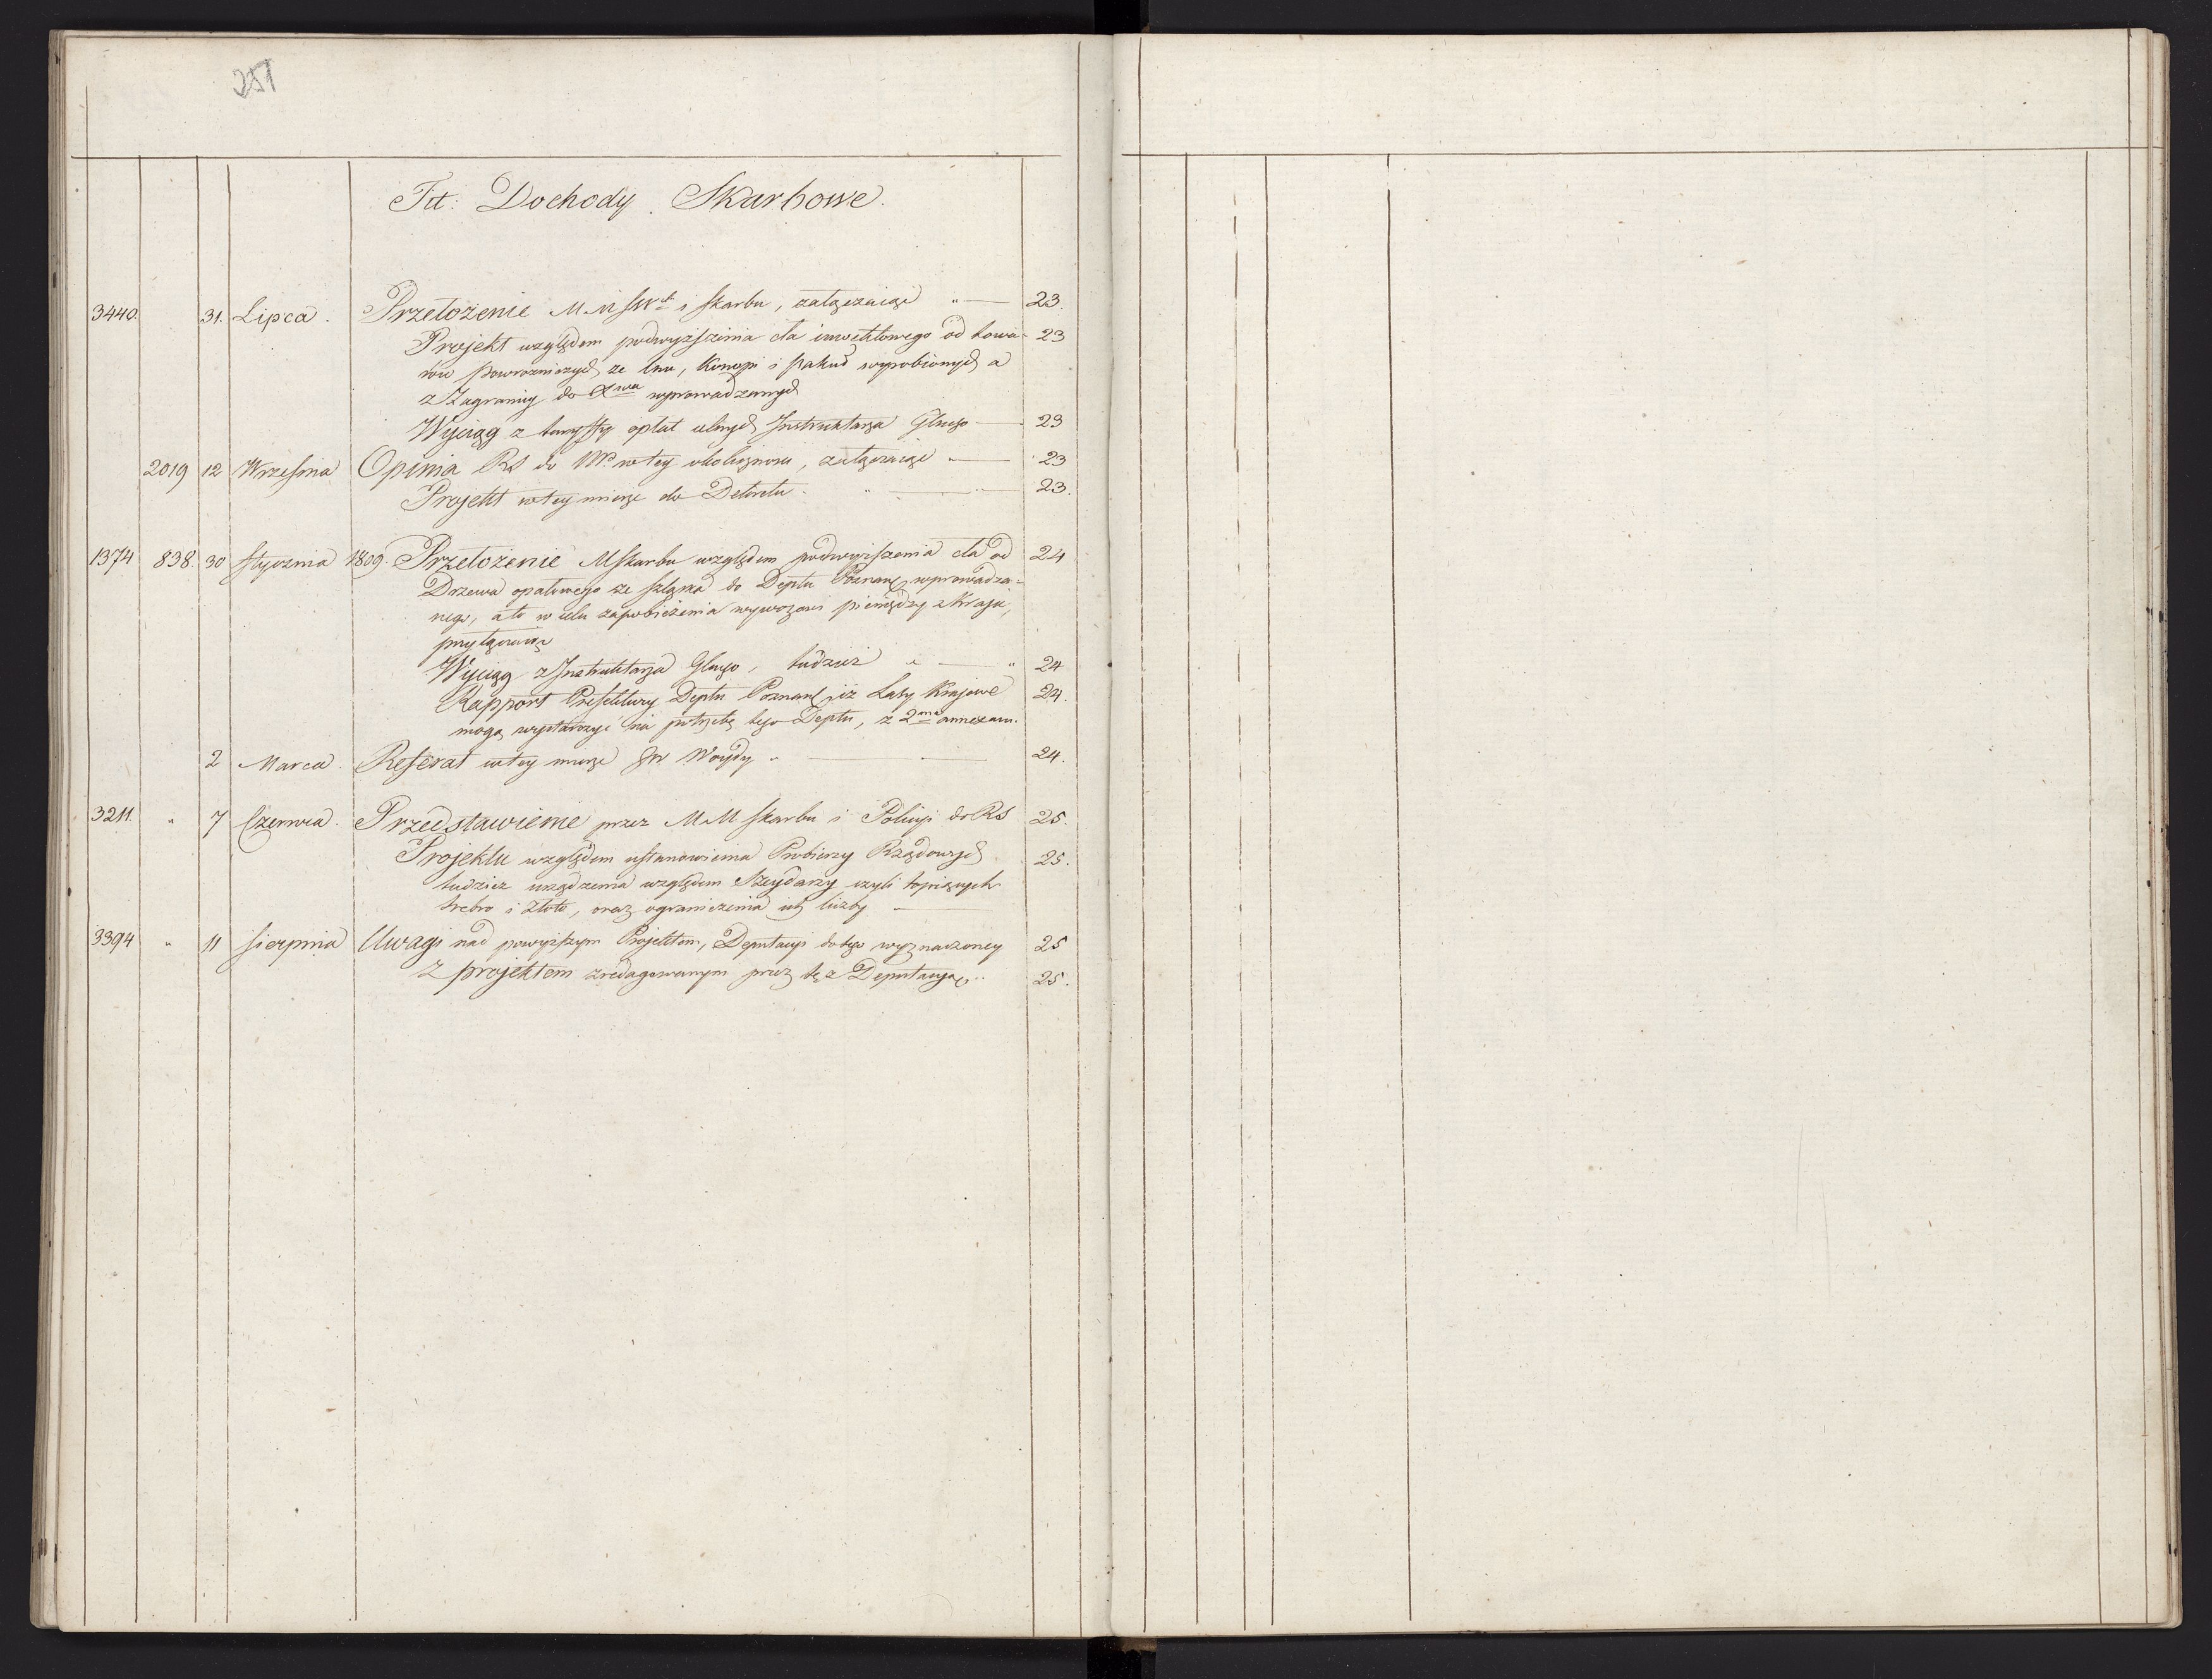 251
Tit: Dochody Skarbowe.
3440. 31. Lipca. Przełożenie M M SW i Skarbu, załączaiące " — 23.
Projekt względem podwyższenia cła inwektowego od towa= 23
rów powrozniczych ze lnu, konopi i pakuł wyrobionych a
z Zagranicy do Xwa wprowadzanych
Wyciąg z taryffy opłat celnych Instruktarza Glnego — 23
2019 12 Września Opinia RS do w tey okoliczności, załączaiące — 23
Projekt w tey mierze do Dekretu. " — 23.
1374 838. 30 Stycznia 1809. Przełożenie MSkarbu względem podwyższenia cła od 24
Drzewa opałowego ze Szląska do Deptu Poznań wprowadza=
nego, a to w celu zapobieżenia wywozowi pieniędzy z Kraju,
przyłączaiąc
Wyciąg z Instruktarza Glnego, tudzież " — " 24
Rapport Prefektury Deptu Poznań iż Lasy Krajowe 24.
mogą wystarczyć na potrzebę tego Deptu, z 2ma annexami.
2 Marca. Referat w tey mierze JW Woydy " — 24.
3211. " 7 Czerwca. Przedstawienie przez M M Skarbu i Policyi do RS 25.
Projektu względem ustanowienia Probierzy Rządowych 25.
tudzież urządzenia względem Szeydarzy czyli topiących
srebro i złoto, oraz ograniczenia ich liczby —
3394 " 11 Sierpnia Uwagi nad powyższym Projektem, Deputacyi do tego wyznaczoney 25
z projektem zredagowanym przez tęż Deputacyą. 25.